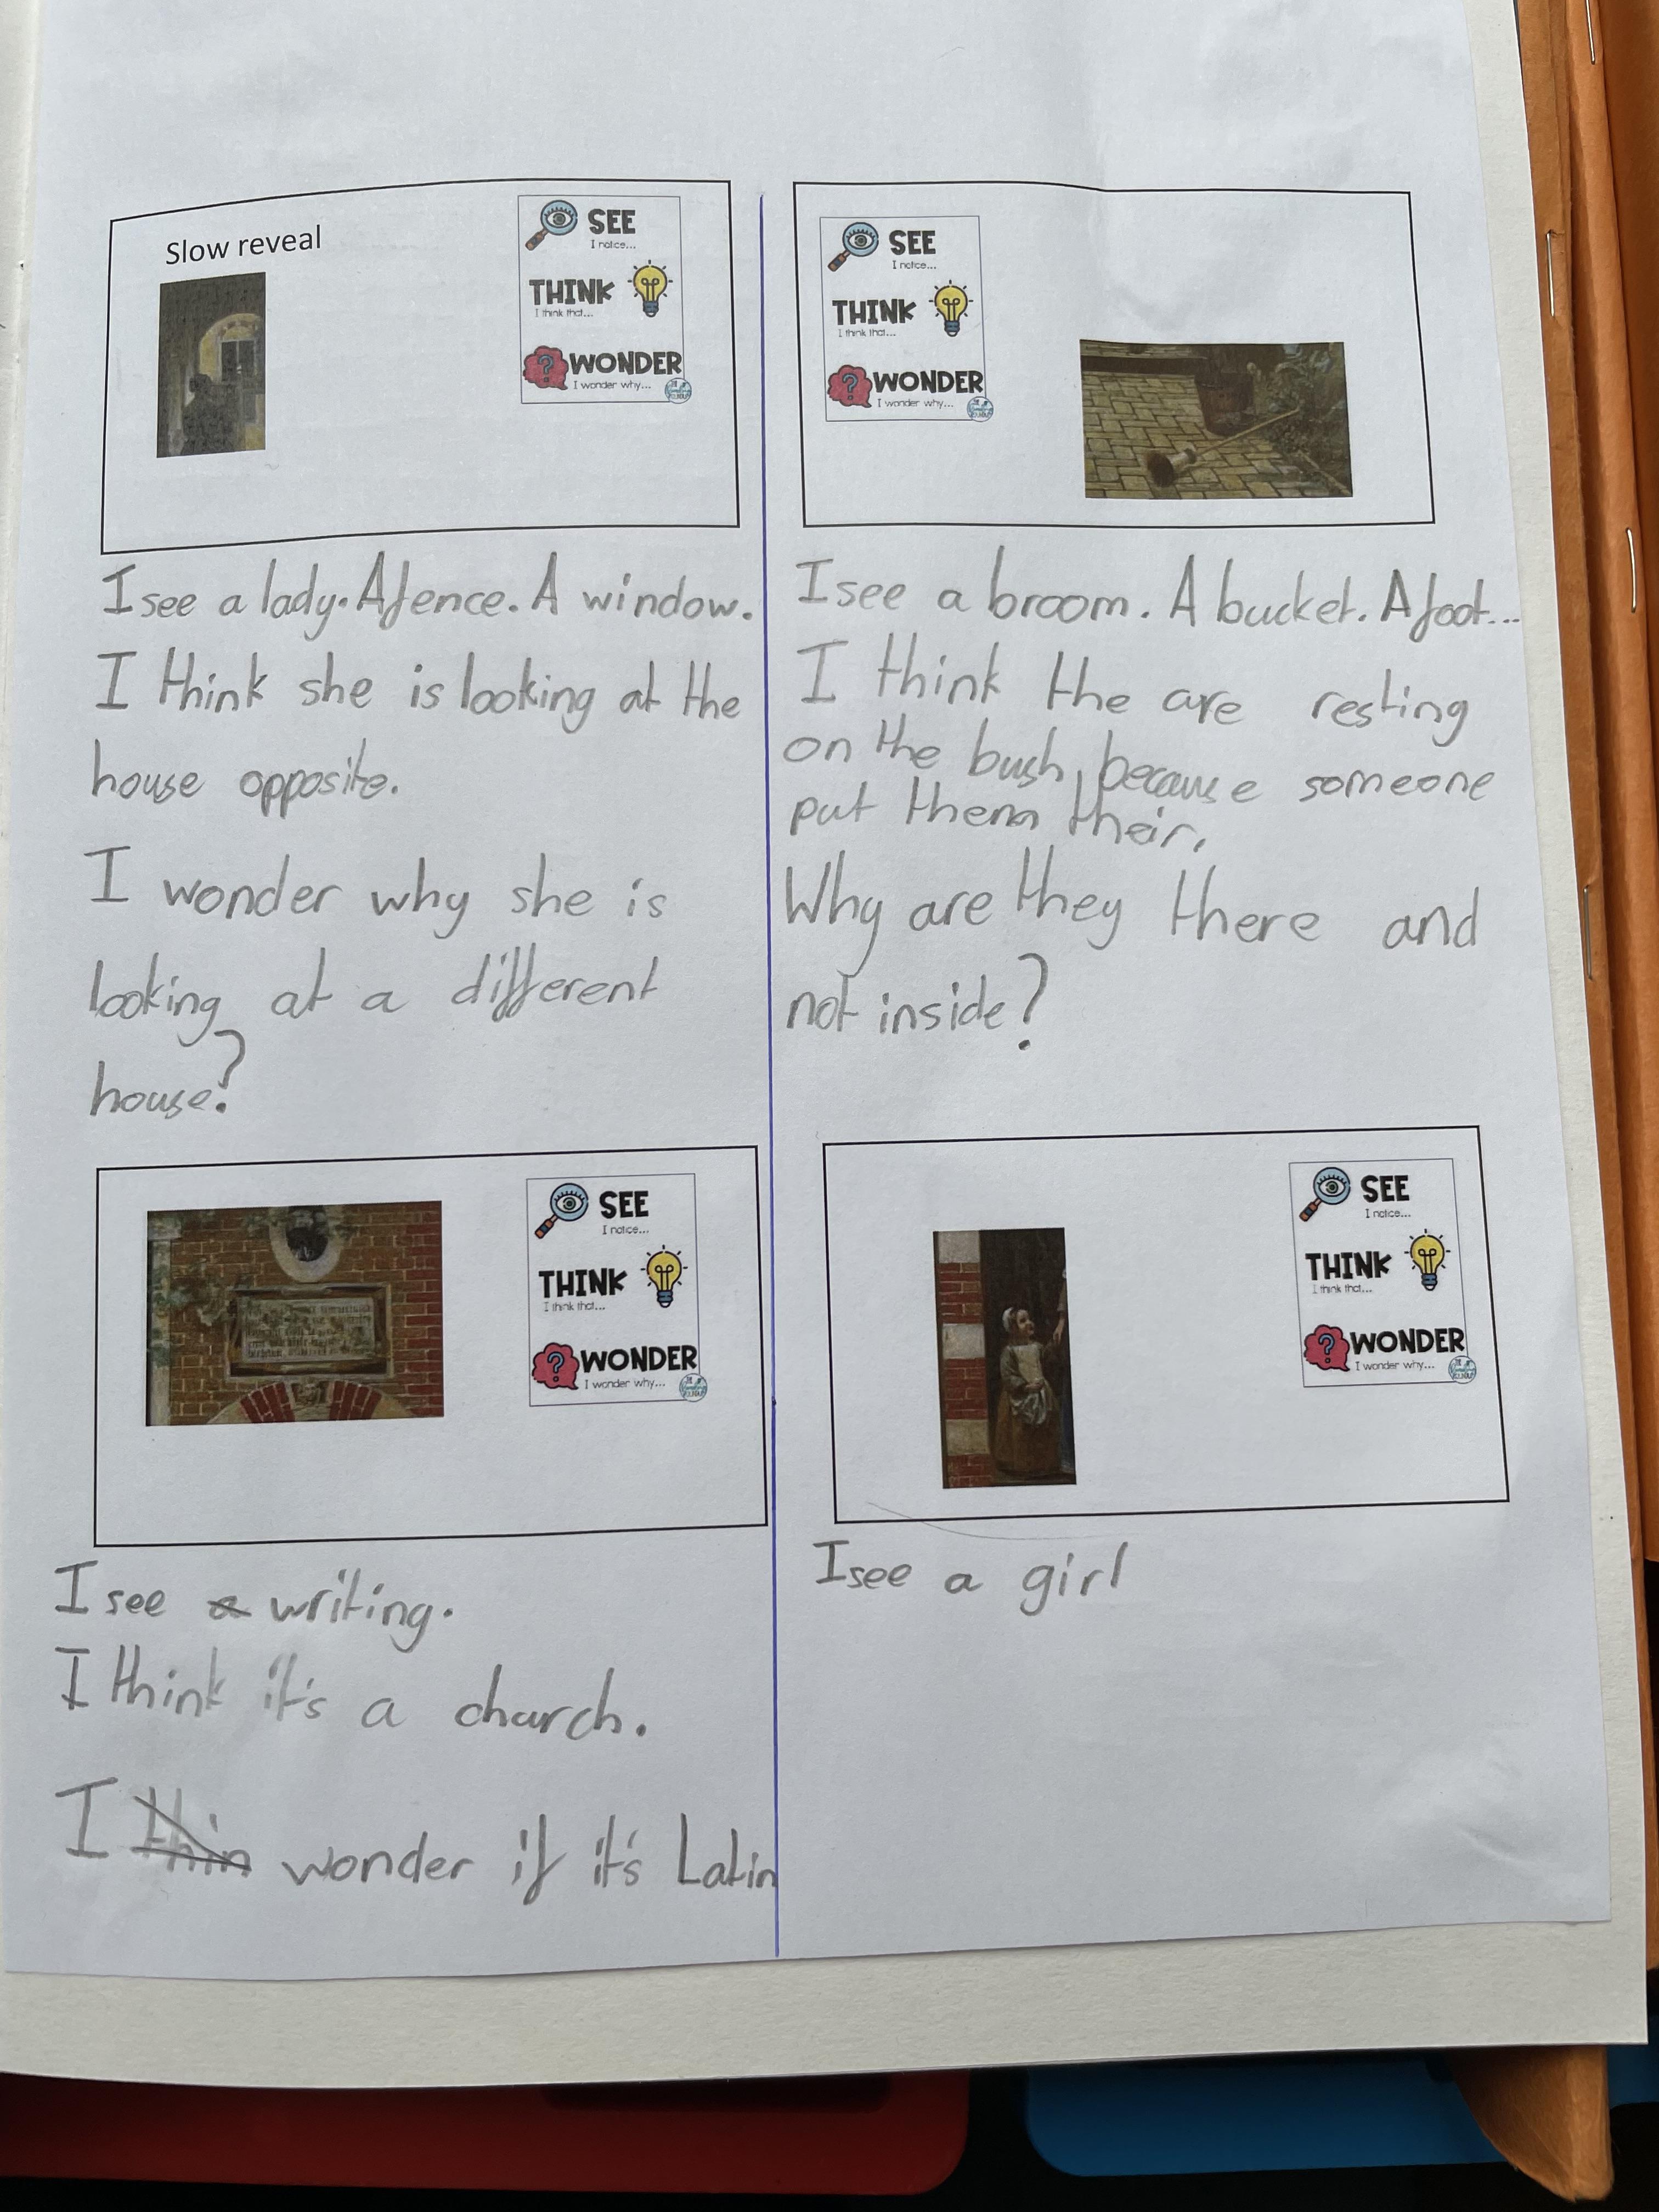 Slow reveal
SEE
I notice...
THINK
I think that...
WONDER
I wonder why...
I see a lady. A fence. A window.
I think she is looking at the
house opposite.
I wonder why she is
looking at a different
house?
SEE
I notice...
THINK
I think that...
WONDER
I wonder why...
I see a broom. A bucket. A foot...
I think the are resting
on the bush, because someone
put them their,
Why are they there and
not inside?
SEE
I notice...
THINK
I think that...
WONDER
I wonder why...
I see a writing.
I think it's a church.
I thin wonder if it's Latin
SEE
I notice...
THINK
I think that...
WONDER
I wonder why...
I see a girl